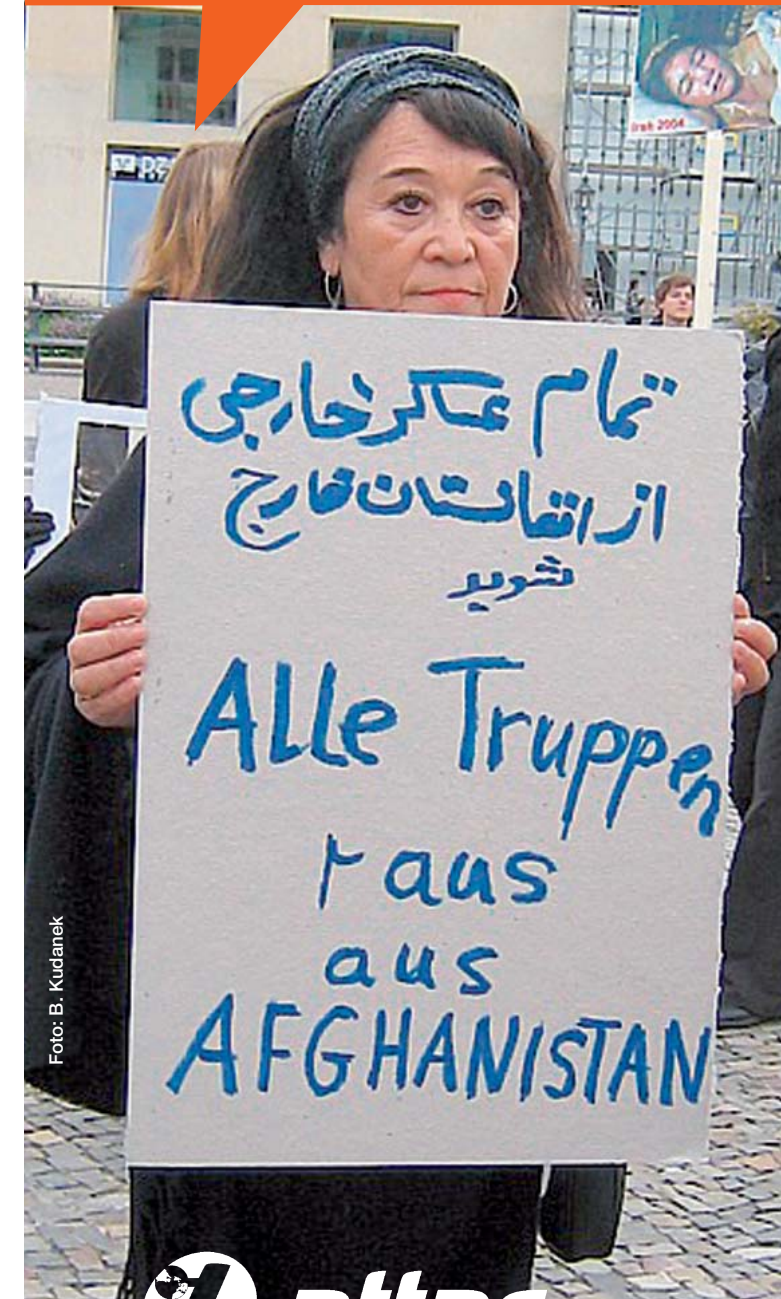 Irak 2004
تمام عساکر خارجی
از افغانستان خارج
شوید
Alle Truppen
raus
aus
AFGHANISTAN
Foto: B. Kudanek
attac